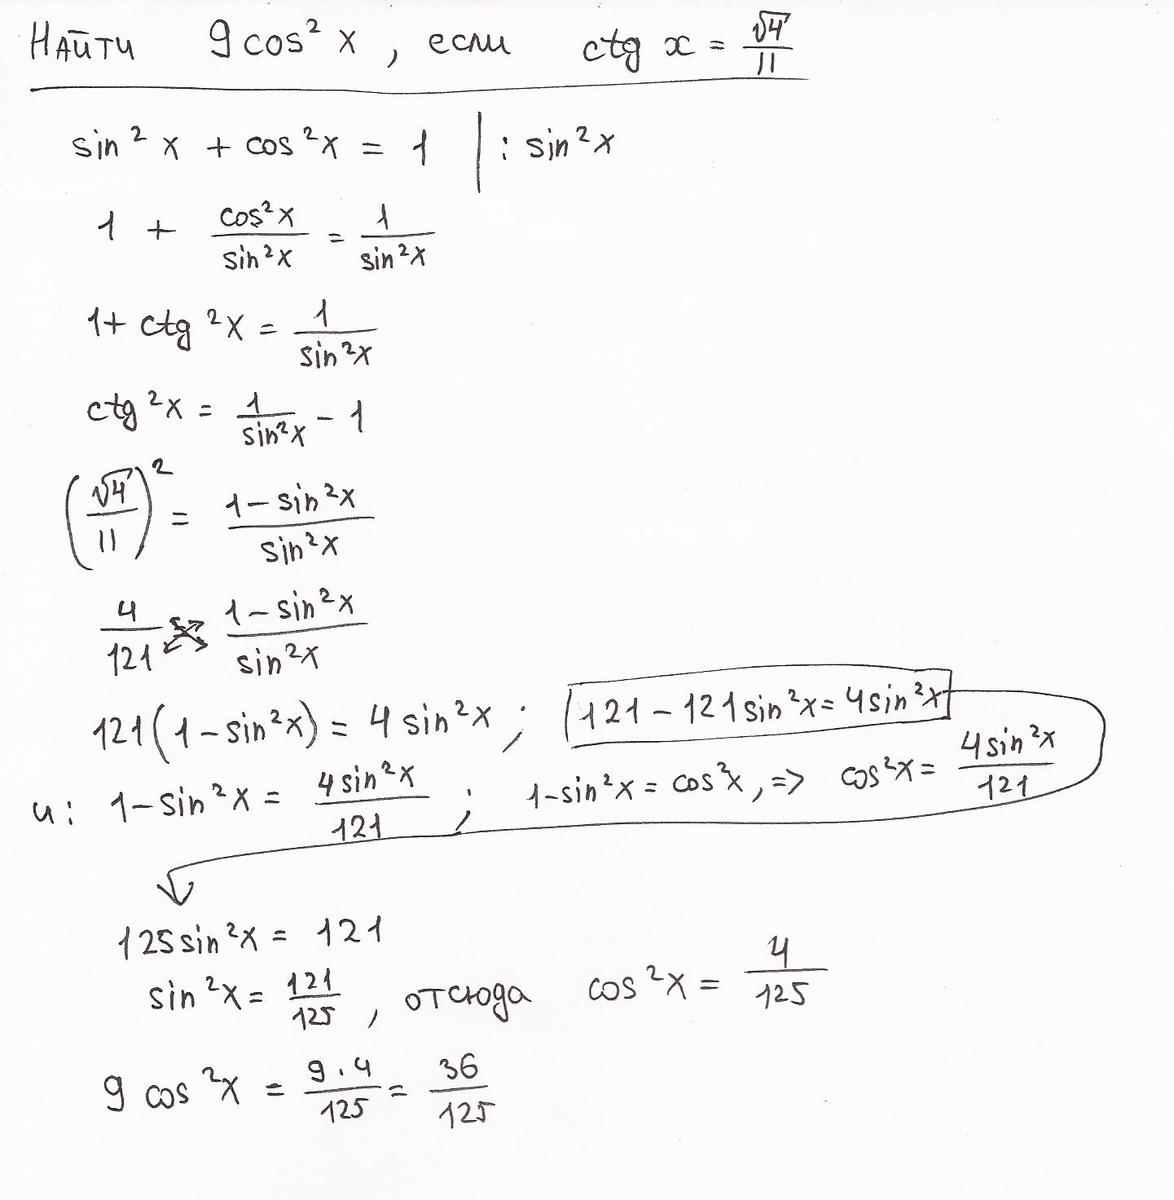 Найти 9cos² x, если ctg x = √4/11
sin² x + cos²x = 1 | : sin²x
1 + cos²x/sin²x = 1/sin²x
1+ ctg ²x = 1/sin²x
ctg ²x = 1/sin²x - 1
(√4/11)² = 1-sin²x/sin²x
4/121 1-sin²x/sin²x
121(1-sin²x) = 4 sin²x ; 121-121sin²x=4sin²x
и: 1-sin²x = 4sin²x/121 ; 1-sin²x = cos²x, => cos²x = 4sin²x/121
125sin²x = 121
sin²x = 121/125, отсюда cos²x = 4/125
9 cos ²x = 9·4/125 = 36/125